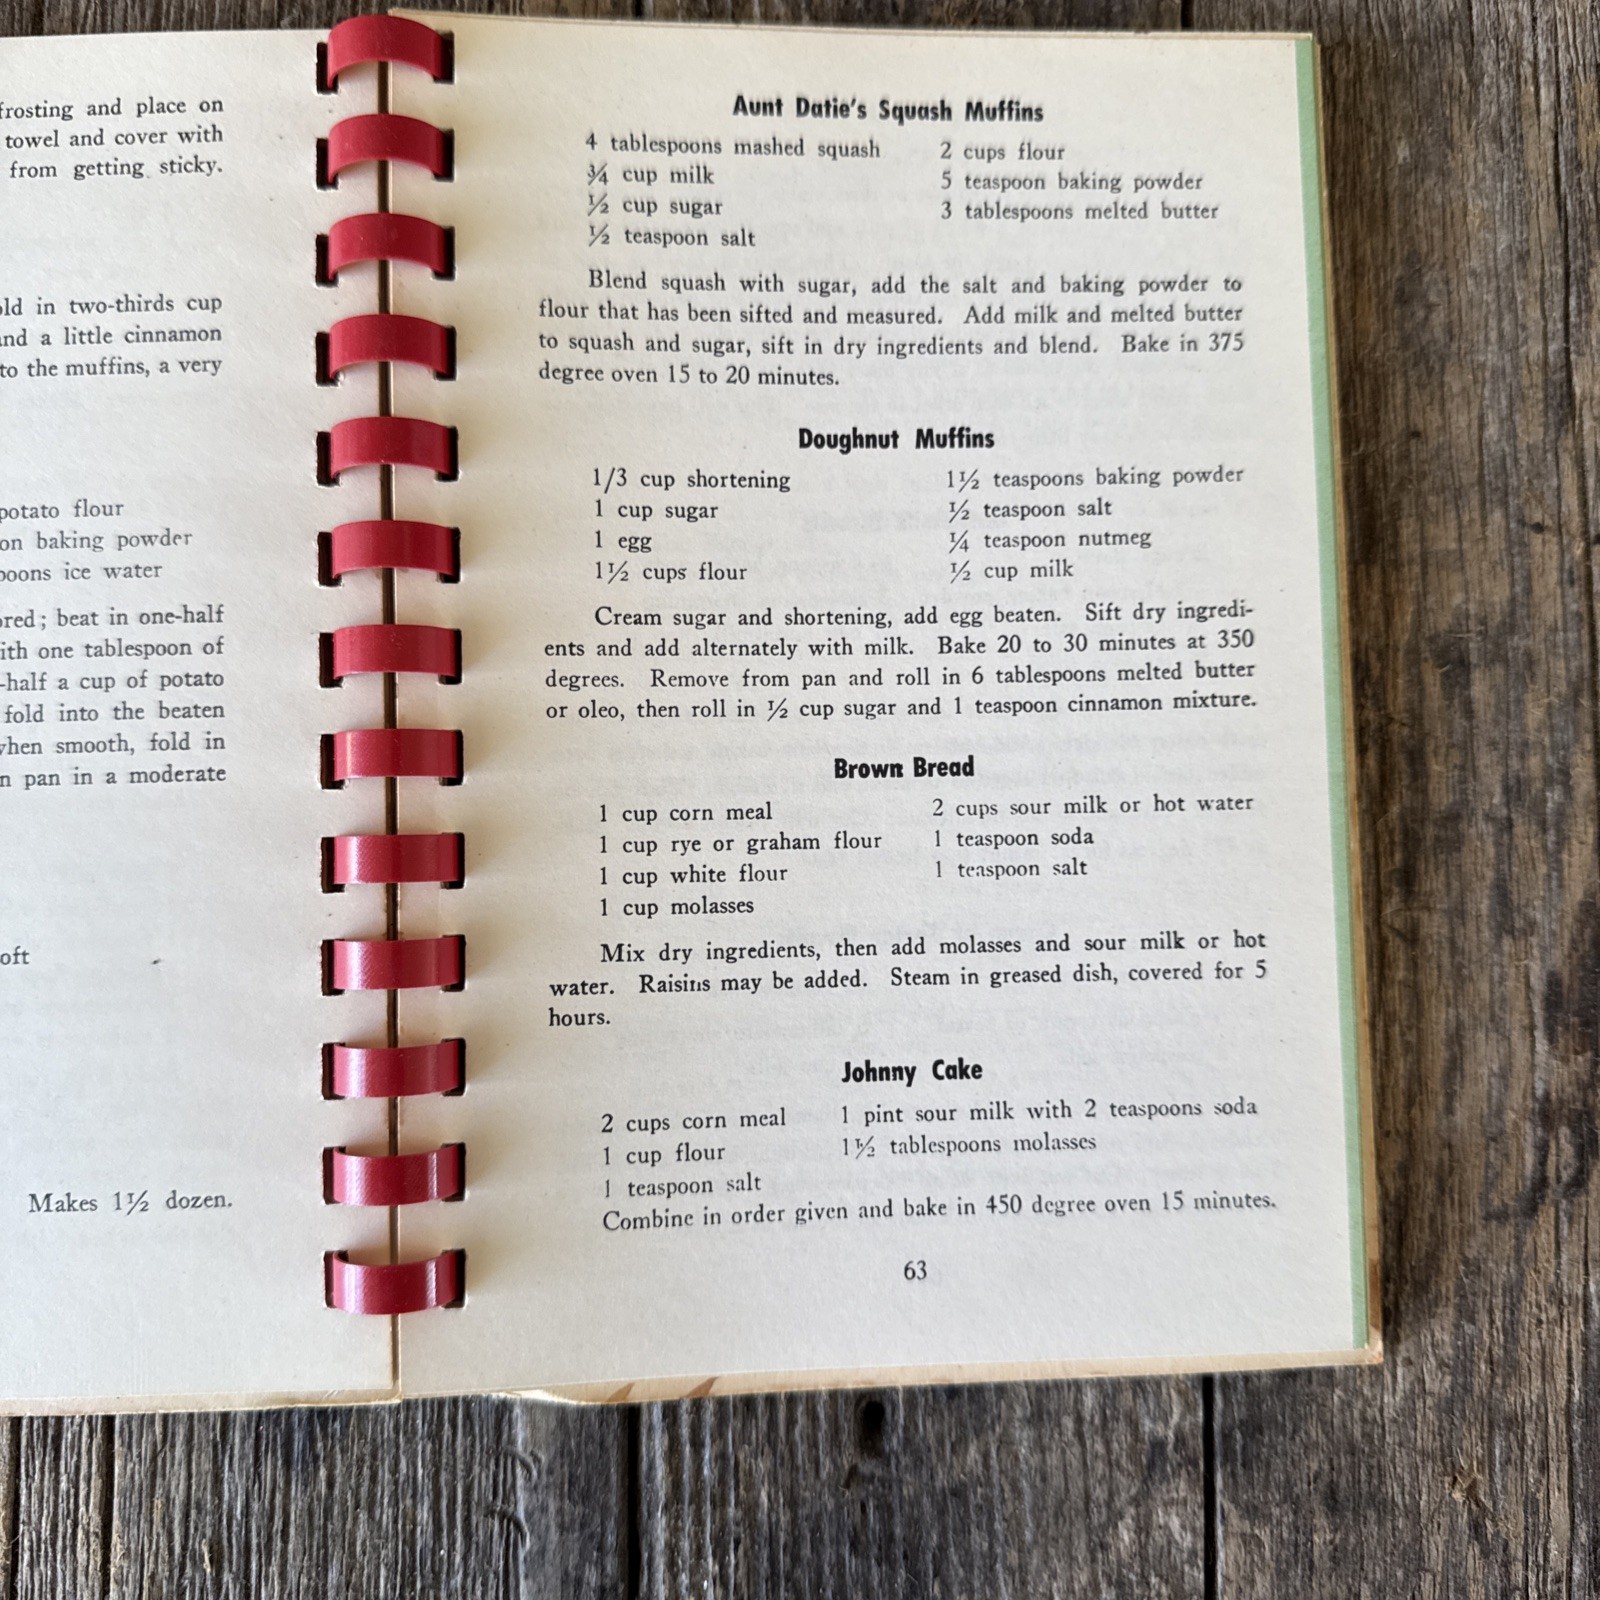 frosting and place on
towel and cover with
from getting sticky.
in two-thirds cup
and a little cinnamon
to the muffins, a very
potato flour
baking powder
ice water
beat in one-half
with one tablespoon of
-half a cup of potato
fold into the beaten
when smooth, fold in
pan in a moderate
Makes 1½ dozen.
Aunt Datie's Squash Muffins
4 tablespoons mashed squash
¾ cup milk
½ cup sugar
½ teaspoon salt
2 cups flour
5 teaspoon baking powder
3 tablespoons melted butter
Blend squash with sugar, add the salt and baking powder to
flour that has been sifted and measured. Add milk and melted butter
to squash and sugar, sift in dry ingredients and blend. Bake in 375
degree oven 15 to 20 minutes.
Doughnut Muffins
1/3 cup shortening
1 cup sugar
1 egg
1½ cups flour
1½ teaspoons baking powder
½ teaspoon salt
¼ teaspoon nutmeg
½ cup milk
Cream sugar and shortening, add egg beaten. Sift dry ingredi-
ents and add alternately with milk. Bake 20 to 30 minutes at 350
degrees. Remove from pan and roll in 6 tablespoons melted butter
or oleo, then roll in ½ cup sugar and 1 teaspoon cinnamon mixture.
Brown Bread
1 cup corn meal
1 cup rye or graham flour
1 cup white flour
1 cup molasses
2 cups sour milk or hot water
1 teaspoon soda
1 teaspoon salt
Mix dry ingredients, then add molasses and sour milk or hot
water. Raisins may be added. Steam in greased dish, covered for 5
hours.
Johnny Cake
2 cups corn meal
1 cup flour
1 teaspoon salt
1 pint sour milk with 2 teaspoons soda
1½ tablespoons molasses
Combine in order given and bake in 450 degree oven 15 minutes.
63